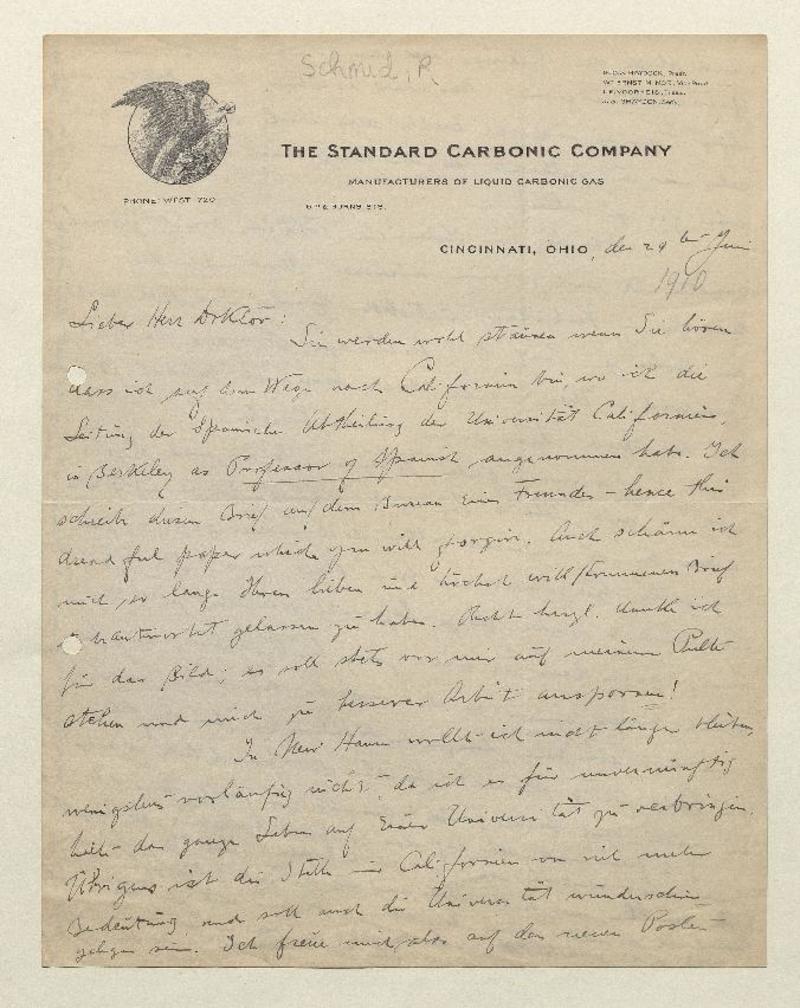 Schmid, R
THE STANDARD CARBONIC COMPANY
MANUFACTURERS OF LIQUID CARBONIC GAS
PHONE: WEST 720
CINCINNATI, OHIO, den 29ten Juni
1910
Lieber Herr Doktor:
Sie werden wohl staunen wenn Sie hören
dass ich auf dem Wege nach Californien bin, wo ich die
Leitung der Spanischen Abtheilung der Universität Californiens,
in Berkeley as Professor of Spanish angenommen habe. Ich
schreibe diesen Brief auf dem Bureau eines Freundes – hence this
dreadful paper which you will forgive. Auch schäme ich
mich, so lange Ihren lieben und höchst willkommenen Brief
unbeantwortet gelassen zu haben. Recht herzl. danke ich
für das Bild; es soll stets vor mir auf meinem Pulte
stehen und mich zu besserer Arbeit anspornen!
In New Haven wollte ich nicht länger bleiben,
wenigstens vorläufig nicht, da ich es für unvernünftig
halte das ganze Leben auf einer Universität zu verbringen.
Übrigens ist die Stelle in Californien von viel mehr
Bedeutung und soll auch die Universität wunderschön
gelegen sein. Ich freue mich also auf den neuen Posten